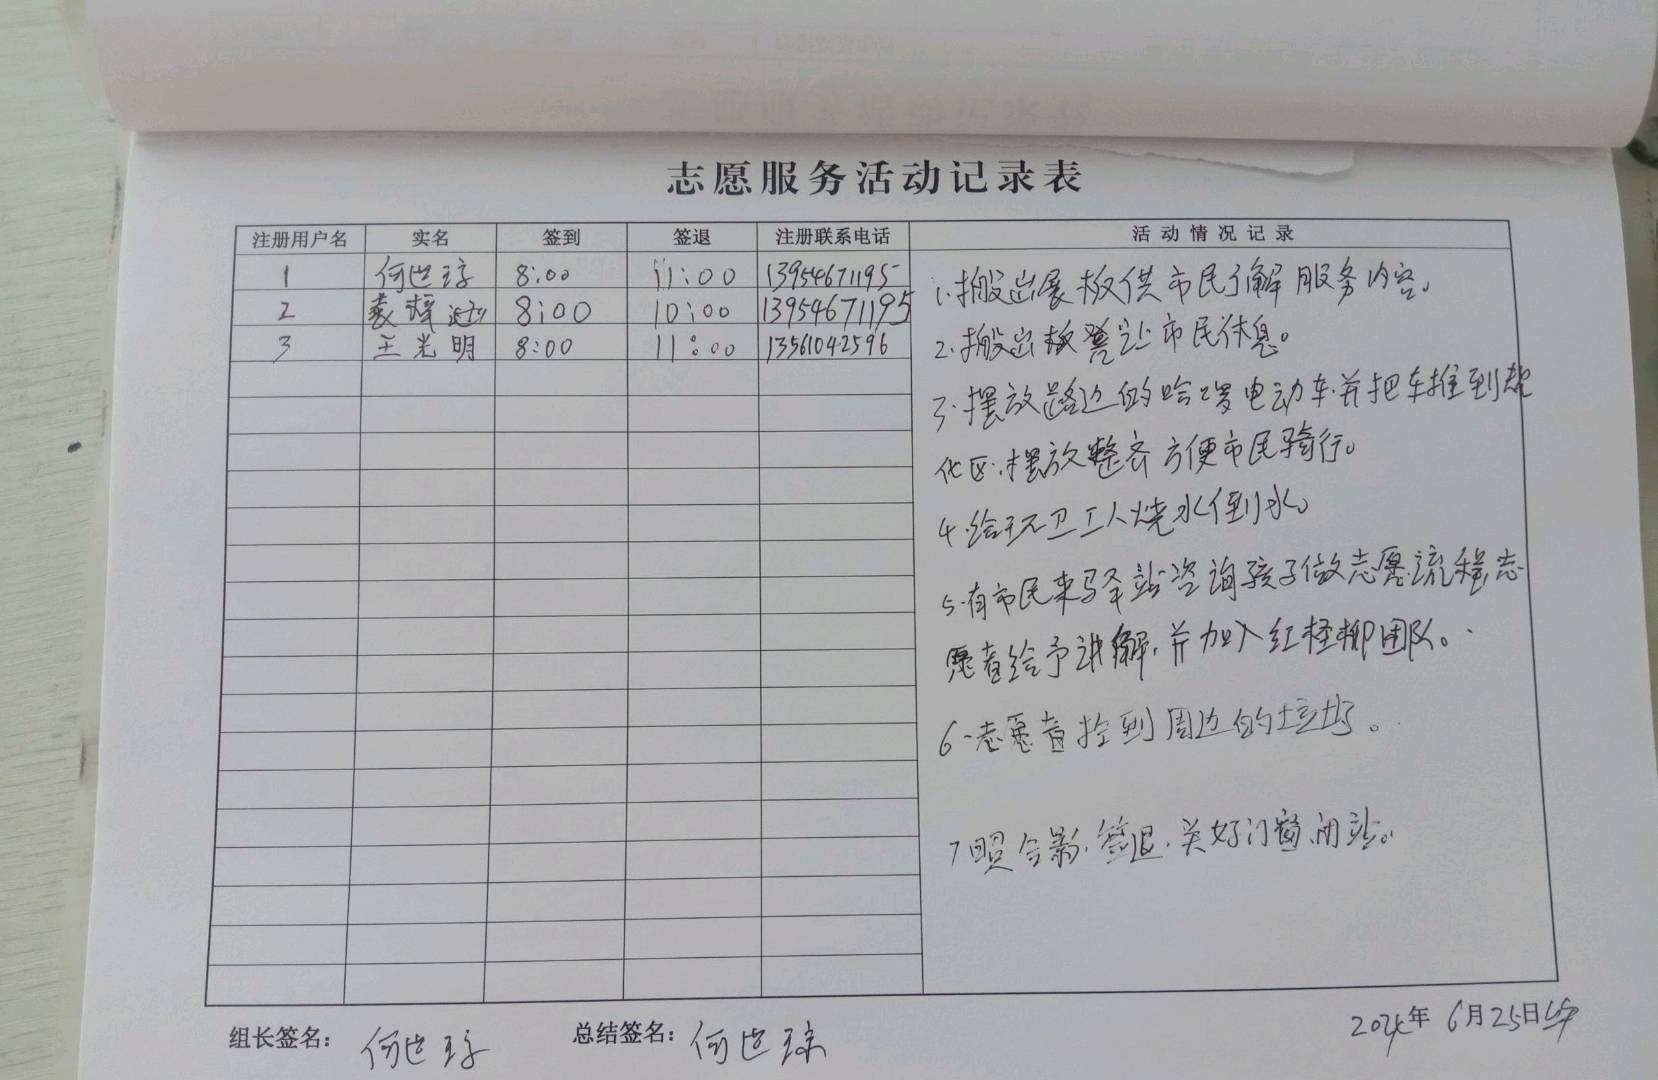 志愿服务活动记录表
注册用户名 实名 签到 签退 注册联系电话 活动情况记录
1 何世琼 8:00 11:00 13954671195
2 袁梓逊 8:00 10:00 13954671195
3 王光明 8:00 11:00 13561042596
1.搬出展板供市民了解服务内容。
2.搬出板凳让市民休息。
3.摆放路边的哈啰电动车.并把车推到规
化区.摆放整齐方便市民骑行。
4.给环卫工人烧水倒水。
5.有市民来驿站咨询孩子做志愿流程志
愿者给予讲解.并加入红柽柳团队。
6.志愿者捡到周边的垃圾。
7照合影.签退.关好门窗闭站。
组长签名：何世琼 总结签名：何世琼
2024年 6月25日